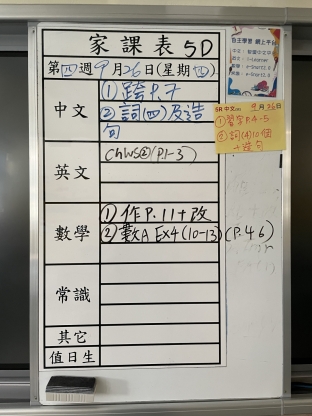 家課表 5D
第四週9月26日(星期四)
中文
① 跨P.7
② 詞(四)及造
句
英文
ChWS②(P.1-3)
數學
① 作P.11+改
② 數A EX4(10-13)(P.46)
常識
其它
值日生
自主學習 網上平台
5R 中文 9月26日
① 習字P.4-5
② 詞(4)10個
+造句